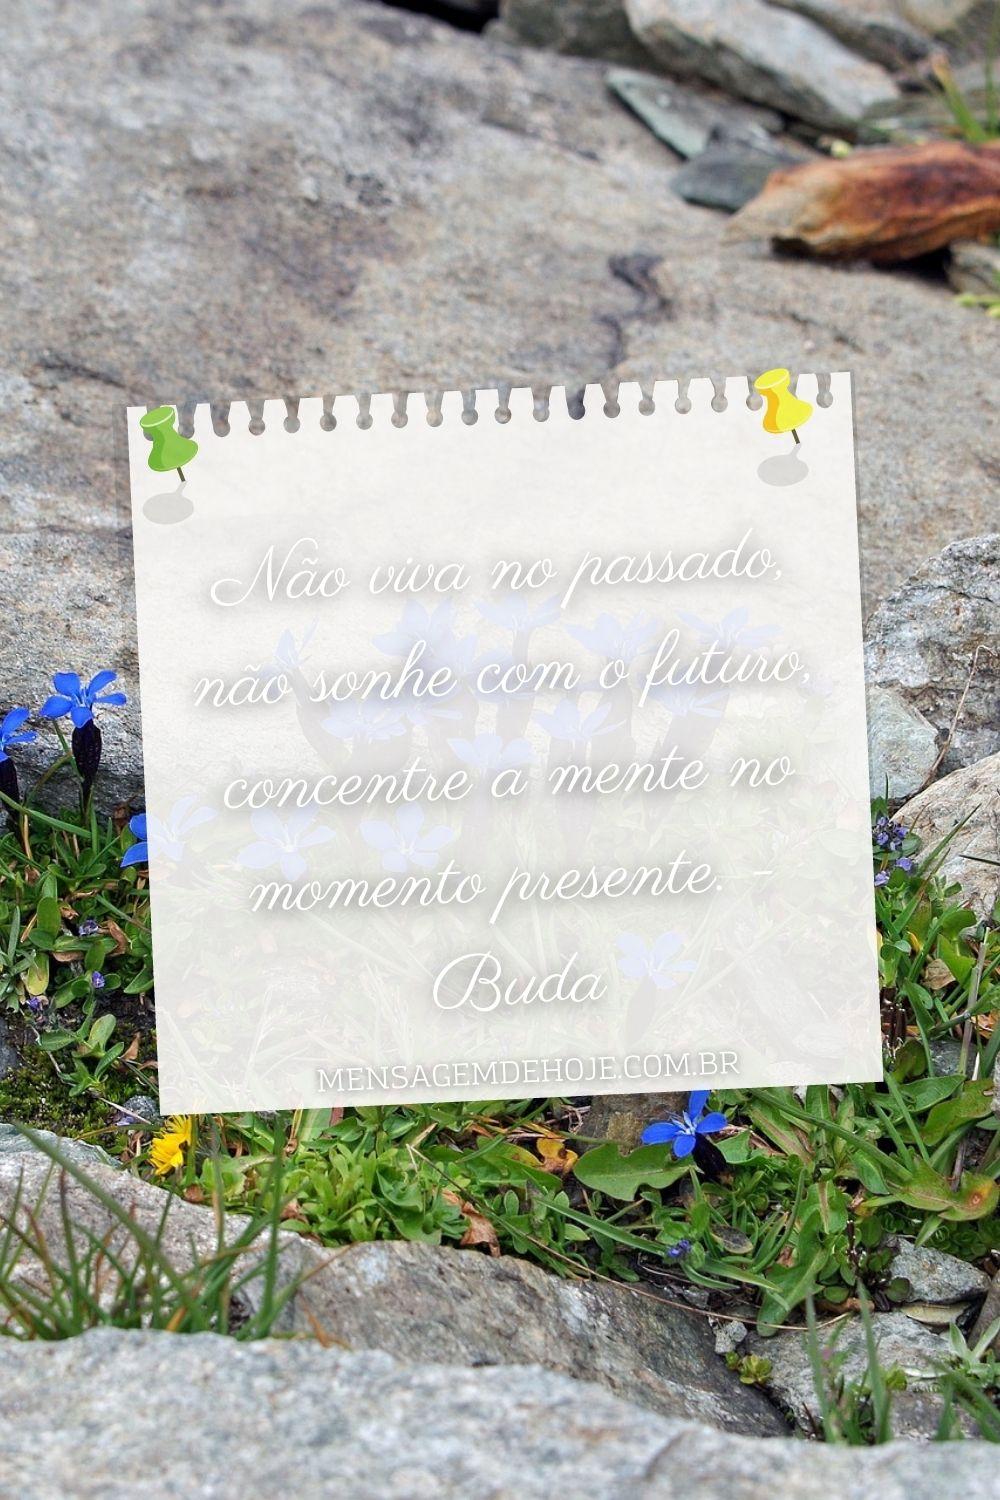 Não viva no passado,
não sonhe com o futuro,
concentre a mente no
momento presente. -
Buda
MENSAGEMDEHOJE.COM.BR